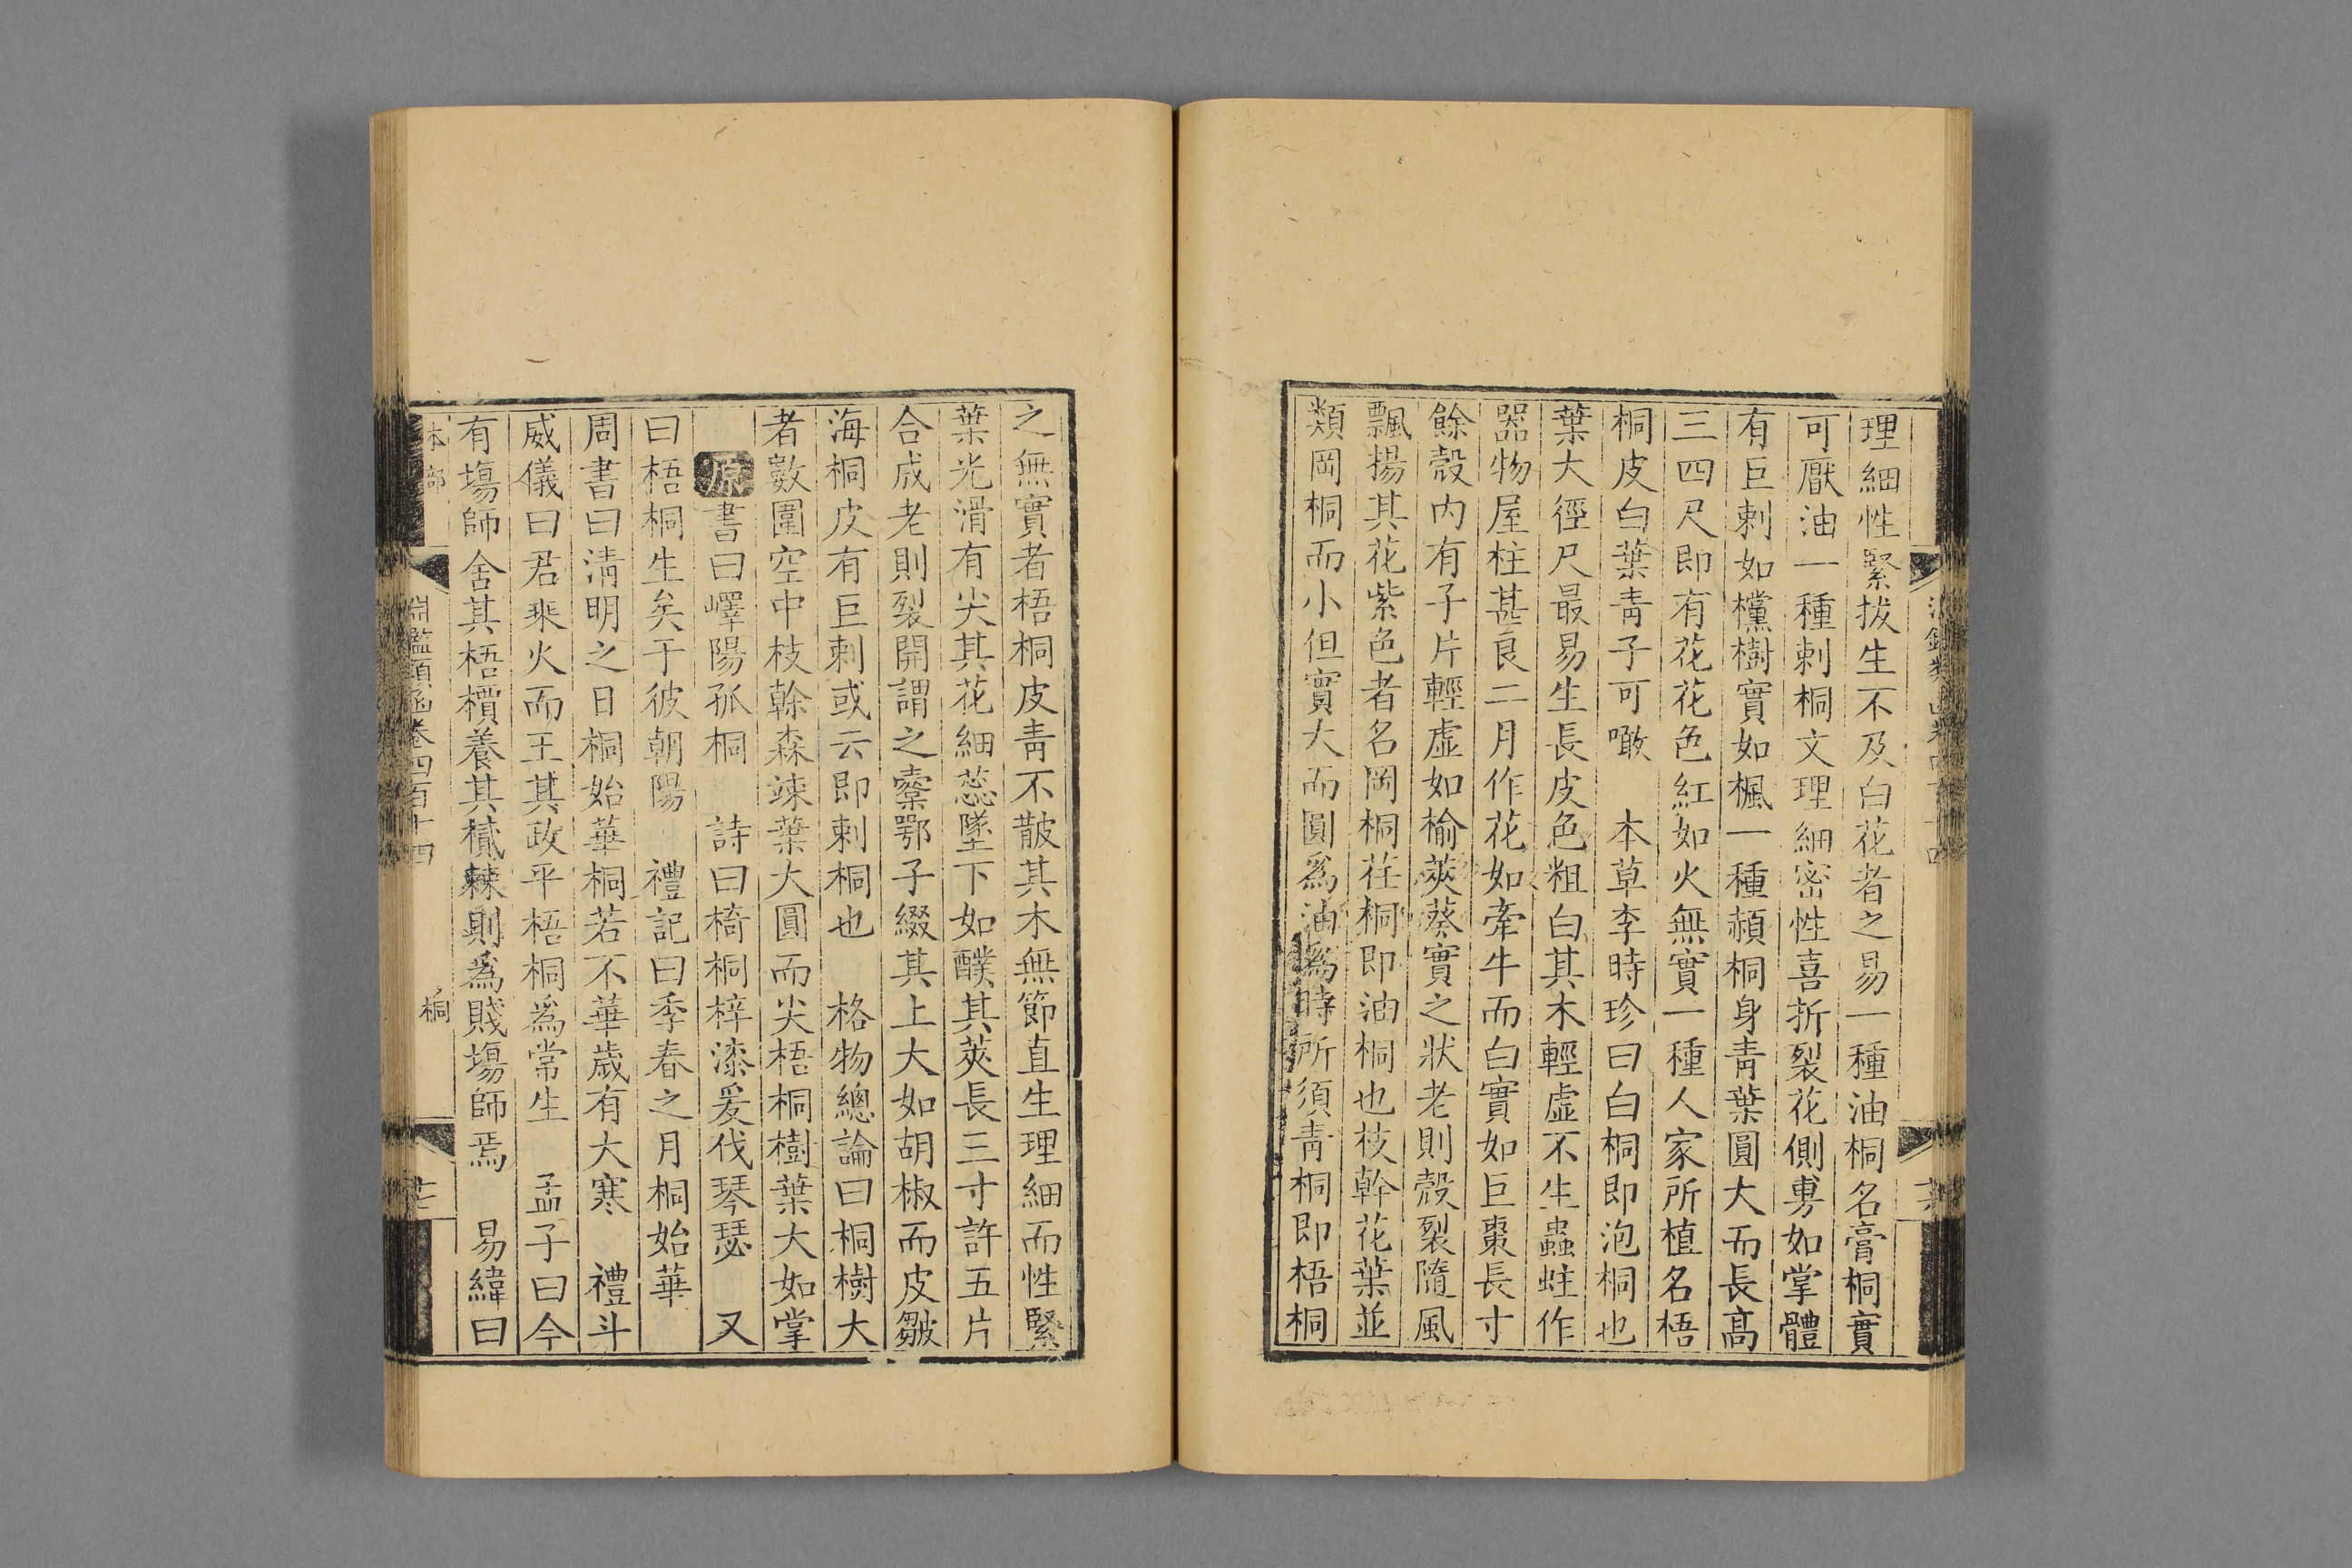 理細性緊拔生不及白花者之易一種油桐名膏桐實
可厭油一種刺桐文理細密性喜折裂花側旉如掌體
有巨刺如欓樹實如楓一種頳桐身青葉圓大而長高
三四尺即有花花色紅如火無實一種人家所植名梧
桐皮白葉青子可噉　本草李時珍曰白桐即泡桐也
葉大徑尺最易生長皮色粗白其木輕虛不生蟲蛀作
器物屋柱甚良二月作花如牽牛而白實如巨棗長寸
餘殼内有子片輕虛如榆莢葵實之狀老則殼裂隨風
飄揚其花紫色者名岡桐荏桐即油桐也枝幹花葉並
類岡桐而小但實大而圓爲油爲時所須青桐即梧桐
之無實者梧桐皮青不皵其木無節直生理細而性緊
葉光滑有尖其花細蕊墜下如醭其莢長三寸許五片
合成老則裂開謂之櫜鄂子綴其上大如胡椒而皮皺
海桐皮有巨刺或云即刺桐也　格物總論曰桐樹大
者數圍空中枝幹森竦葉大圓而尖梧桐樹葉大如掌
原書曰嶧陽孤桐　詩曰椅桐梓漆爰伐琴瑟　又
曰梧桐生矣于彼朝陽　禮記曰季春之月桐始華
周書曰淸明之日桐始華桐若不華歲有大寒　禮斗
威儀曰君乘火而王其政平梧桐爲常生　孟子曰今
有塲師舍其梧檟養其樲棘則爲賤塲師焉　易緯曰
木部　淵鑑類函卷四百十四　桐